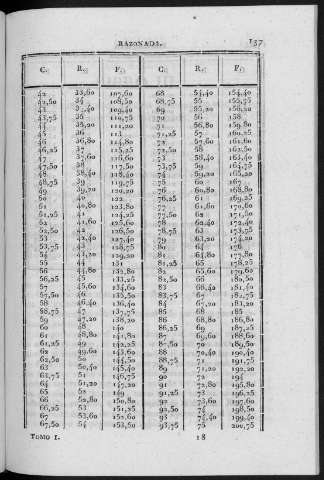 RAZONADA. 137
C. R. F. C. R. F.
42 33,60 107,60 68 54,40 154,40
42,50 34 108,50 68,75 55 155,75
43 34,40 109,40 69 55,20 156,20
43,75 35 110,75 70 56 158
44 35,20 111,20 71 56,80 159,80
45 36 113 71,25 57 160,25
46 36,80 114,80 72 57,60 161,60
46,25 37 115,25 72,50 58 162,50
47 37,60 116,60 73 58,40 163,40
47,50 38 117,50 73,75 59 164,75
48 38,40 118,40 74 59,20 165,20
48,75 39 119,75 75 60 167
49 39,20 120,20 76 60,80 168,80
50 40 122 76,25 61 169,25
51 40,80 123,80 77 61,60 170,60
51,25 41 124,25 77,50 62 171,50
52 41,60 125,60 78 62,40 172,40
52,50 42 126,50 78,75 63 173,75
53 42,40 127,40 79 63,20 174,20
53,75 43 128,75 80 64 176
54 43,20 129,20 81 64,80 177,80
55 44 131 81,25 65 178,25
56 44,80 132,80 82 65,60 179,60
56,25 45 133,25 82,50 66 180,50
57 45,60 134,60 83 66,40 181,40
57,50 46 135,50 83,75 67 182,75
58 46,40 136,40 84 67,20 183,20
58,75 47 137,75 85 68 185
59 47,20 138,20 86 68,80 186,80
60 48 140 86,25 69 187,25
61 48,80 141,80 87 69,60 188,60
61,25 49 142,25 87,50 70 189,50
62 49,60 143,60 88 70,40 190,40
62,50 50 144,50 88,75 71 191,75
63 50,40 145,40 89 71,20 192,20
63,75 51 146,75 90 72 194
64 51,20 147,20 91 72,80 195,80
65 52 149 91,25 73 196,25
66 52,80 150,80 92 73,60 197,60
66,25 53 151,25 92,50 74 198,50
67 53,60 152,60 93 74,40 199,40
67,50 54 153,50 93,75 75 200,75
TOMO I. 18